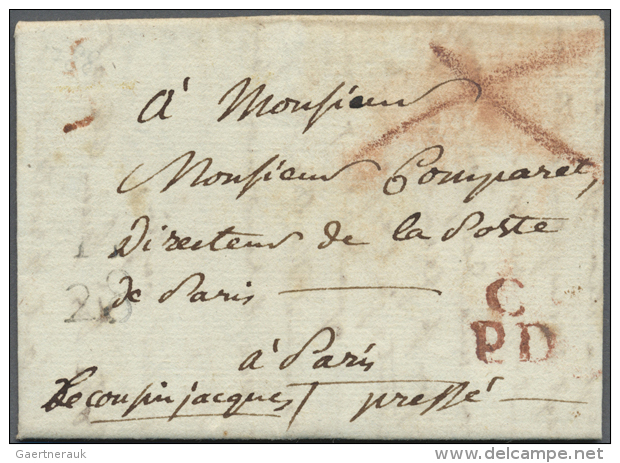 à Monsieur
Monsieur Comparet,
Directeur de la Poste
de Paris
28
C
P.D
à Paris
Le cousin jacques pressé
Gaertnerauk delcampe.net